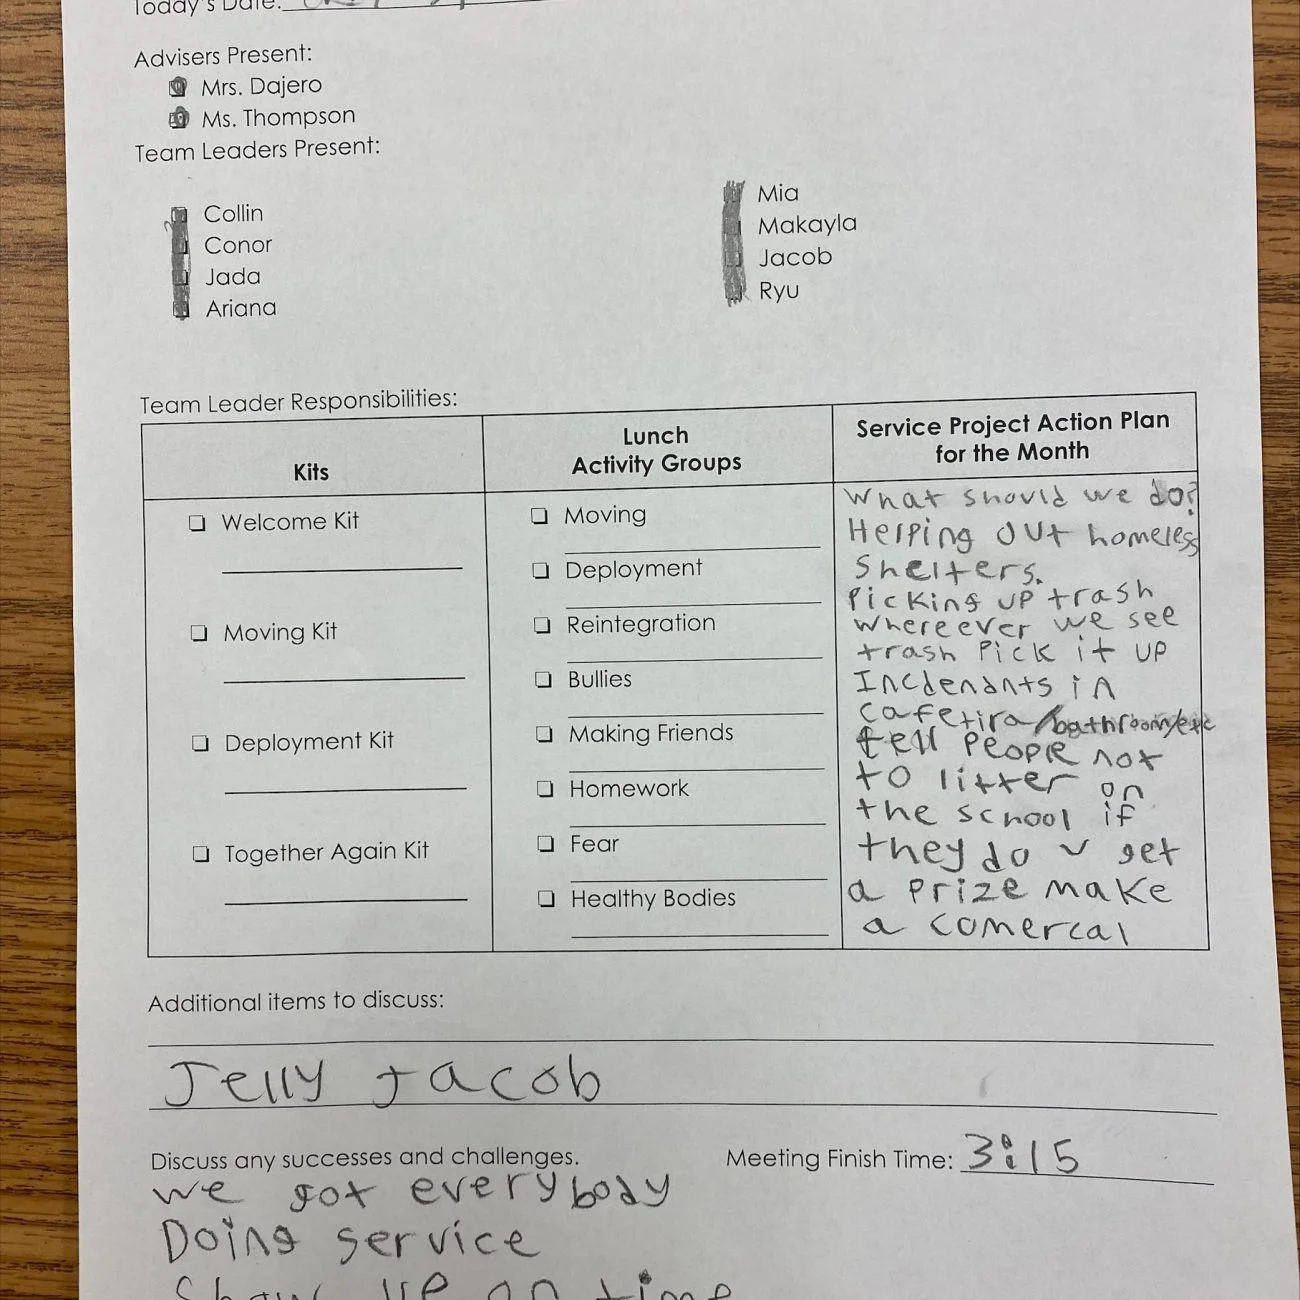 Today's Date:
Advisers Present:
Mrs. Dajero
Ms. Thompson
Team Leaders Present:
Collin
Conor
Jada
Ariana
Mia
Makayla
Jacob
Ryu
Team Leader Responsibilities:
Kits
Welcome Kit
Moving Kit
Deployment Kit
Together Again Kit
Lunch
Activity Groups
Moving
Deployment
Reintegration
Bullies
Making Friends
Homework
Fear
Healthy Bodies
Service Project Action Plan
for the Month
What should we do?
Helping out homeless
shelters.
Picking up trash
whereever we see
trash pick it up
Incdenants in
cafetira/bathroom/etc
tell people not
to litter on
the school if
they do u get
a prize make
a comercal
Additional items to discuss:
Jelly Jacob
Discuss any successes and challenges.
Meeting Finish Time: 3:15
we got everybody
Doing service
Show up on time